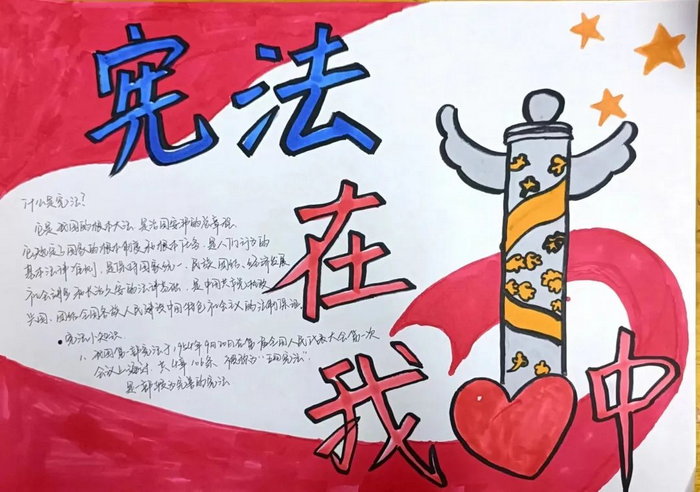 宪法
在
我
中
什么是宪法?
它是我国的根本大法,是治国安邦的总章程。
它规定了国家的根本制度和根本任务,是人们行为的
基本法律准则,是保持国家统一、民族团结、经济发展
和社会进步和长治久安的法律基础,是中国共产党执政
兴国、团结全国各族人民建设中国特色社会主义的法制保证。
宪法小知识
1. 我国第一部宪法于1954年9月20日在第一届全国人民代表大会第一次
会议上通过,共4章106条,被称为“五四宪法”,
是一部较为完善的宪法